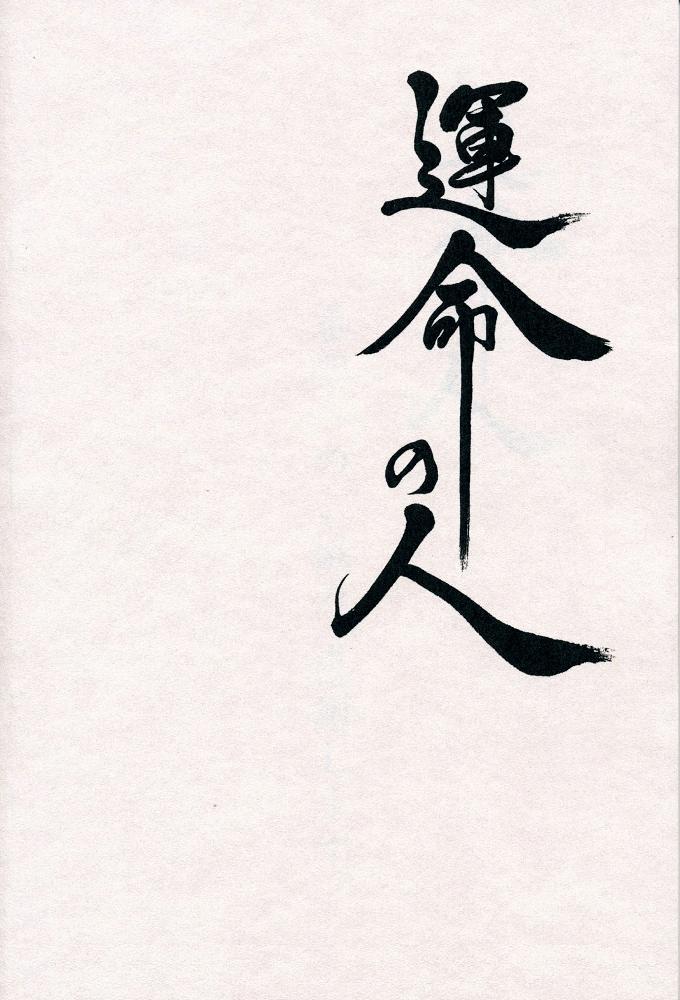 運命の人